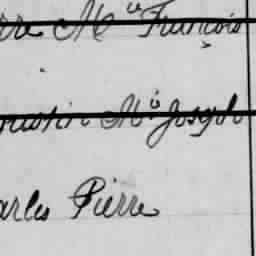 rre M ie François
gustin M ie Joseph
arles Pierre